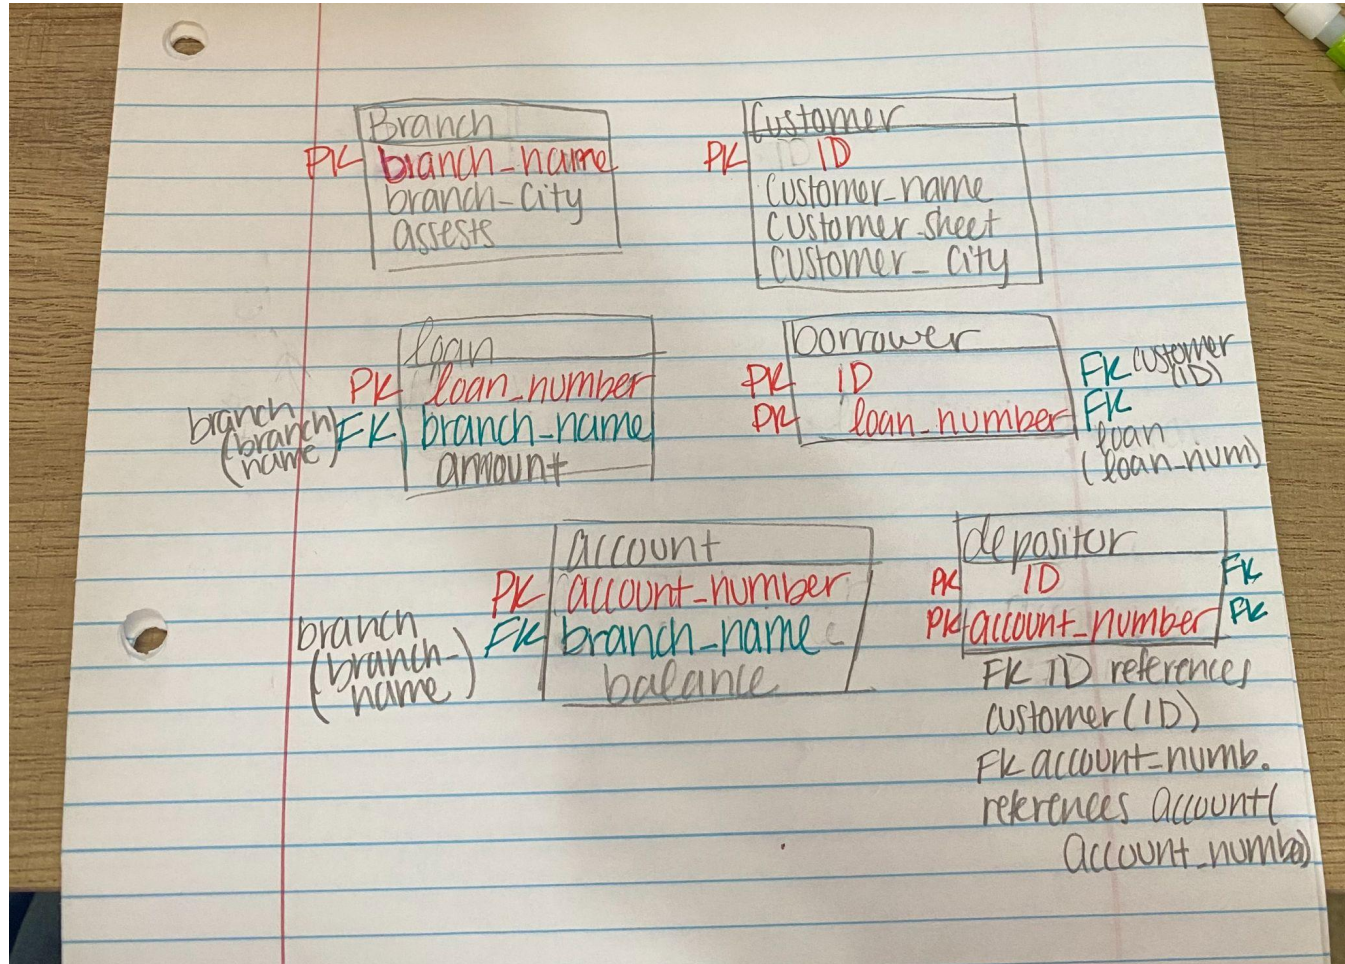 Branch
PK branch_name
branch-city
assests
Customer
PK ID
customer_name
customer sheet
customer_city
loan
PK loan_number
branch
(branch
name) FK branch_name
amount
borrower
PK ID FK customer
(ID)
PK loan_number FK
loan
(loan_num)
account
PK account_number
FK branch_name
branch
(branch-
name)
balance
depositor
PK ID FK
PK account_number FK
FK ID references
customer(ID)
FK account_numb.
references account(
account_number)